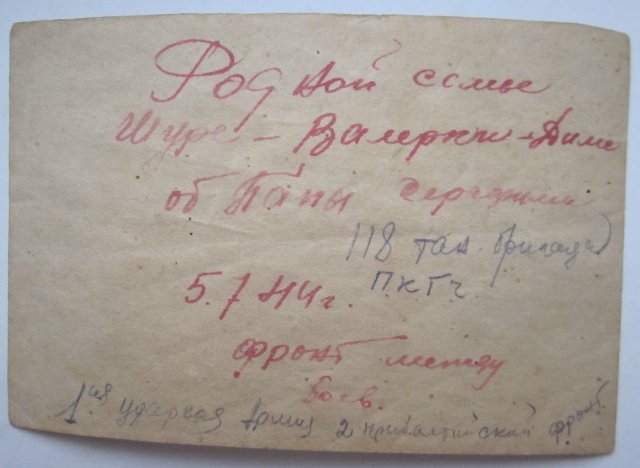 Родной семье
Шуре - Валерки - Диме
от Папы
118 тан. бригада
5.7.44г.
фронт между
боев.
1ая ударная Армия 2 прибалтийский фронт.